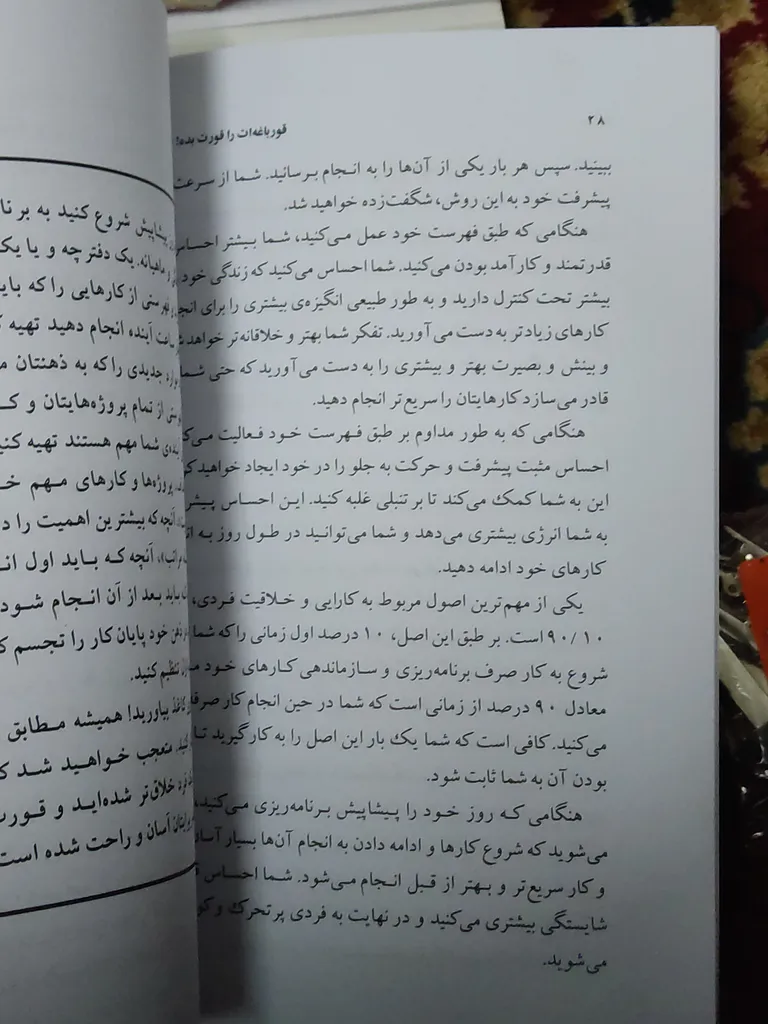 ۲۸
قورباغه‌ات را قورت بده!
ببینید. سپس هر بار یکی از آن‌ها را به انجام برسانید. شما از سرعت
پیشرفت خود به این روش، شگفت‌زده خواهید شد.
هنگامی که طبق فهرست خود عمل می‌کنید، شما بیشتر احساس
قدرتمند و کارآمد بودن می‌کنید. شما احساس می‌کنید که زندگی خود
بیشتر تحت کنترل دارید و به طور طبیعی انگیزه‌ی بیشتری را برای
کارهای زیادتر به دست می‌آورید. تفکر شما بهتر و خلاقانه‌تر خواهد
و بینش و بصیرت بهتر و بیشتری را به دست می‌آورید که حتی شما
قادر می‌سازد کارهایتان را سریع‌تر انجام دهید.
هنگامی که به طور مداوم بر طبق فهرست خود فعالیت
احساس مثبت پیشرفت و حرکت به جلو را در خود ایجاد خواهید
این به شما کمک می‌کند تا بر تنبلی غلبه کنید. این احساس
به شما انرژی بیشتری می‌دهد و شما می‌توانید در طول روز به
کارهای خود ادامه دهید.
یکی از مهم‌ترین اصول مربوط به کارایی و خلاقیت فردی،
۹۰/۱۰ است. بر طبق این اصل، ۱۰ درصد اول زمانی را که شما
شروع به کار صرف برنامه‌ریزی و سازماندهی کارهای خود
معادل ۹۰ درصد از زمانی است که شما در حین انجام کار
می‌کنید. کافی است که شما یک بار این اصل را به کار گیرید تا
بودن آن به شما ثابت شود.
هنگامی که روز خود را پیشاپیش برنامه‌ریزی می‌کنید،
می‌شوید که شروع کارها و ادامه دادن به انجام آن‌ها بسیار
و کار سریع‌تر و بهتر از قبل انجام می‌شود. شما احساس
شایستگی بیشتری می‌کنید و در نهایت به فردی پرتحرک و
می‌شوید.
پیشاپیش شروع کنید به
ماهیانه. یک دفترچه و یا یک
از کارهایی را که
آینده انجام دهید تهیه
جدیدی را که به ذهنتان
از تمام پروژه‌هایتان و
شما مهم هستند تهیه
پروژه‌ها و کارهای مهم
آنچه که بیشترین اهمیت را
آنچه که باید اول
باید بعد از آن انجام شود
ذهن خود پایان کار را تجسم
تنظیم کنید.
کاغذ بیاورید! همیشه مطابق
متعجب خواهید شد
خلاق‌تر شده‌اید و
آسان و راحت شده است